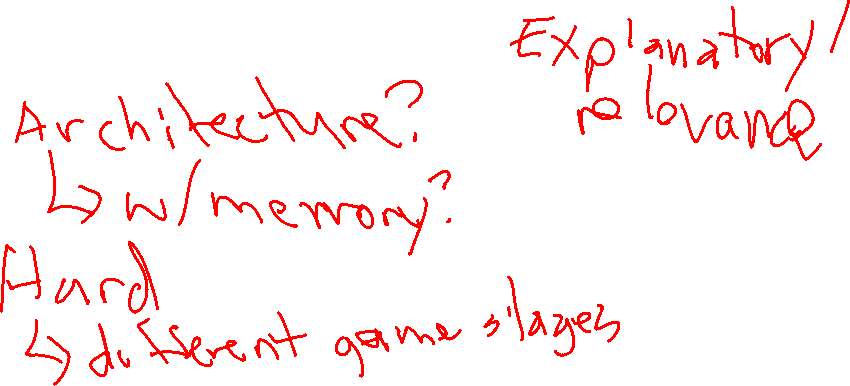 Explanatory /
relevance
Architecture?
↳ w/ memory?
Hard
↳ different game stages